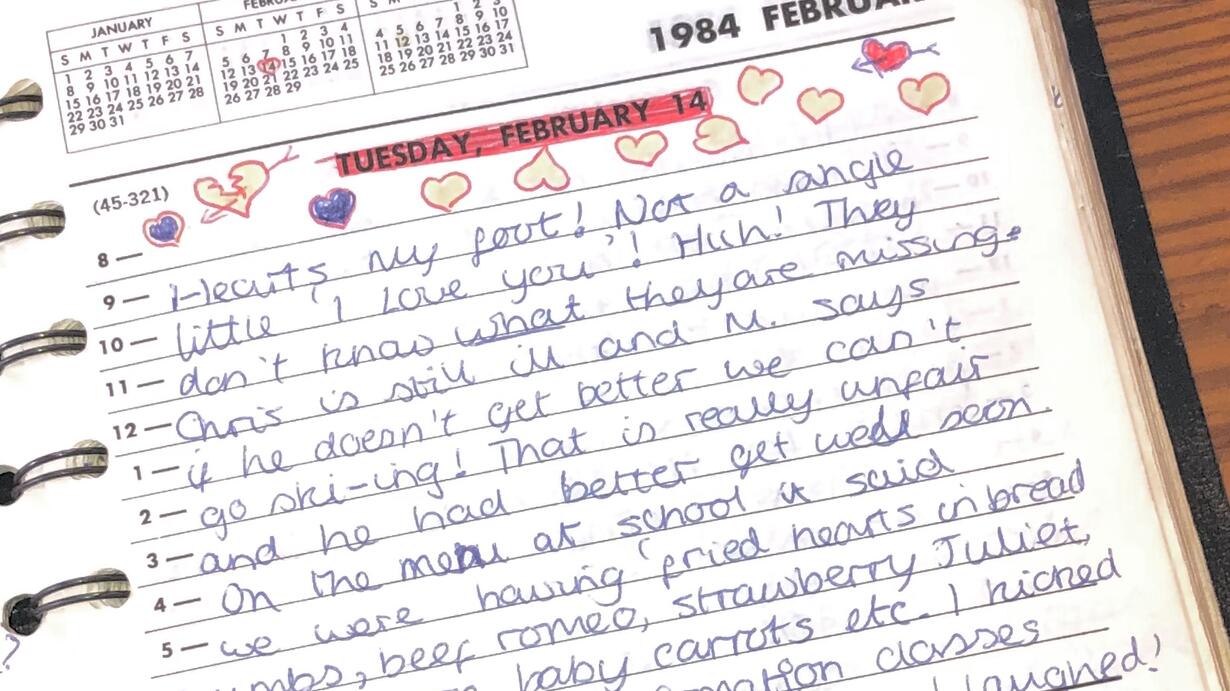 JANUARY
S M T W T F S
1 2 3 4 5 6 7
8 9 10 11 12 13 14
15 16 17 18 19 20 21
22 23 24 25 26 27 28
29 30 31
S M T W T F S
1 2 3 4
5 6 7 8 9 10 11
12 13 14 15 16 17 18
19 20 21 22 23 24 25
26 27 28 29
1 2 3
4 5 6 7 8 9 10
11 12 13 14 15 16 17
18 19 20 21 22 23 24
25 26 27 28 29 30 31
1984
TUESDAY, FEBRUARY 14
(45-321)
8 —
9 — Hearts my foot! Not a single
little 'I Love you'! Huh! They
10 — don't know what they are missing.
11 — Chris is still ill and M. says
12 — if he doesn't get better we can't
1 — go ski-ing! That is really unfair
2 — and he had better get well soon.
3 — On the menu at school it said
4 — we were having 'fried hearts in bread
5 — beef romeo, strawberry Juliet,
baby carrots etc. I
classes